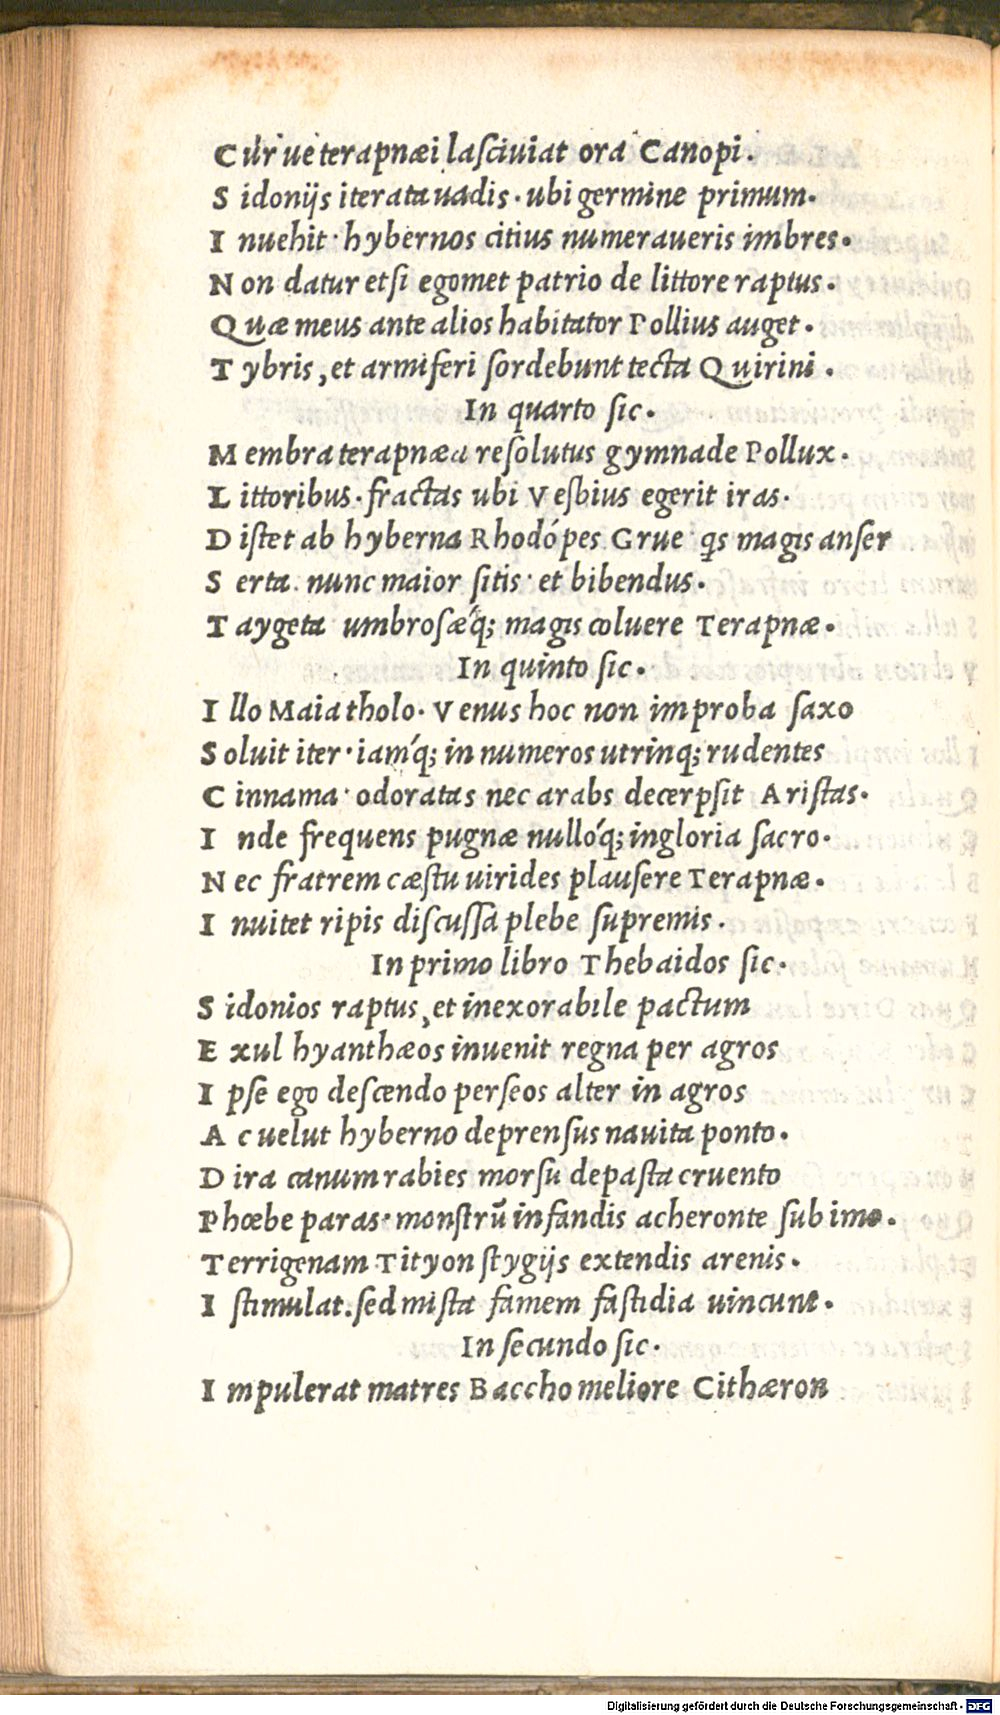 Cur ue terapnæi lasciuiat ora Canopi.
Sidonijs iterata uadis. ubi germine primum.
Inuehit. hybernos citius numeraueris imbres.
Non datur et si egomet patrio de littore raptus.
Quæ meus ante alios habitator Pollius auget.
Tybris, et armiferi sordebunt tecta Quirini.
In quarto sic.
Membra terapnæa resolutus gymnade Pollux.
Littoribus. fractas ubi Vesbius egerit iras.
Distet ab hyberna Rhodópes Grue qs magis anser
Serta. nunc maior sitis. et bibendus.
Taygeta umbrosæq́; magis coluere Terapnæ.
In quinto sic.
Illo Maia tholo. Venus hoc non improba saxo
Soluit iter. iamq́; in numeros utrinq; rudentes
Cinnama. odoratas nec arabs decerpsit Aristas.
Inde frequens pugnæ nulloq́; ingloria sacro.
Nec fratrem cæstu uirides plausere Terapnæ.
Inuitet ripis discussa plebe supremis.
In primo libro Thebaidos sic.
Sidonios raptus, et inexorabile pactum
Exul hyanthæos inuenit regna per agros
Ipse ego descendo perseos alter in agros
Ac uelut hyberno deprensus nauita ponto.
Dira canum rabies morsu depasta cruento
Phœbe paras. monstrũ infandis acheronte sub imo.
Terrigenam Tityon stygijs extendis arenis.
I stimulat. sed mista famem fastidia uincunt.
In secundo sic.
Impulerat matres Baccho meliore Cithæron
Digitalisierung gefördert durch die Deutsche Forschungsgemeinschaft - DFG